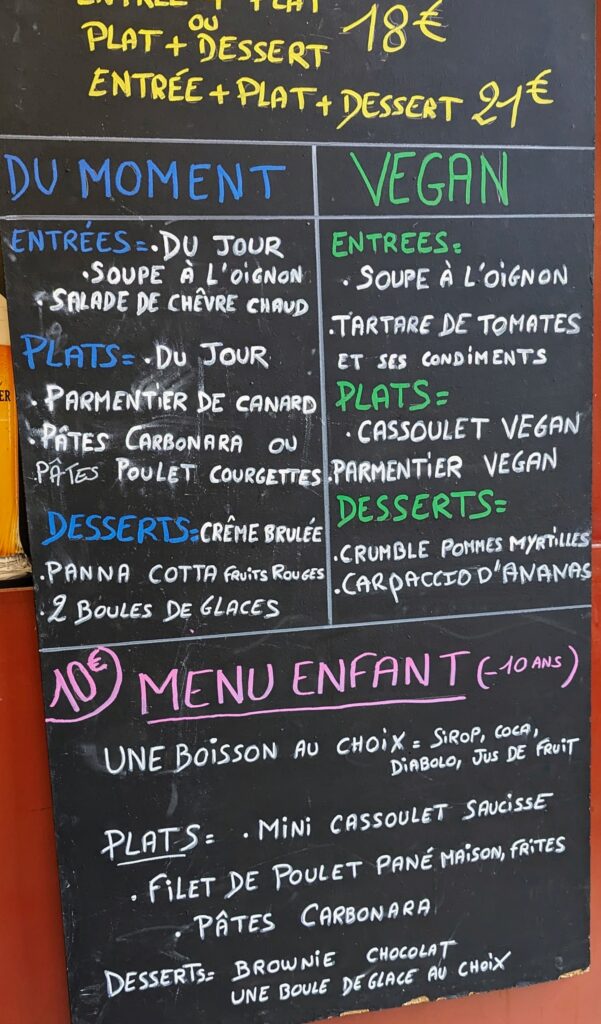 ENTRÉE + PLAT
OU
PLAT + DESSERT 18€
ENTRÉE + PLAT + DESSERT 21€
DU MOMENT
ENTRÉES = . DU JOUR
. SOUPE À L'OIGNON
. SALADE DE CHÊVRE CHAUD
PLATS = . DU JOUR
. PARMENTIER DE CANARD
. PÂTES CARBONARA OU
PÂTES POULET COURGETTES
DESSERTS = CRÊME BRULÉE
. PANNA COTTA FRUITS ROUGES
. 2 BOULES DE GLACES
VEGAN
ENTREES =
. SOUPE À L'OIGNON
. TARTARE DE TOMATES
ET SES CONDIMENTS
PLATS =
. CASSOULET VEGAN
. PARMENTIER VEGAN
DESSERTS =
. CRUMBLE POMMES MYRTILLES
. CARPACCIO D'ANANAS
10€ MENU ENFANT (-10 ANS)
UNE BOISSON AU CHOIX = SIROP, COCA,
DIABOLO, JUS DE FRUIT
PLATS = . MINI CASSOULET SAUCISSE
. FILET DE POULET PANÉ MAISON, FRITES
. PÂTES CARBONARA
DESSERTS = BROWNIE CHOCOLAT
UNE BOULE DE GLACE AU CHOIX